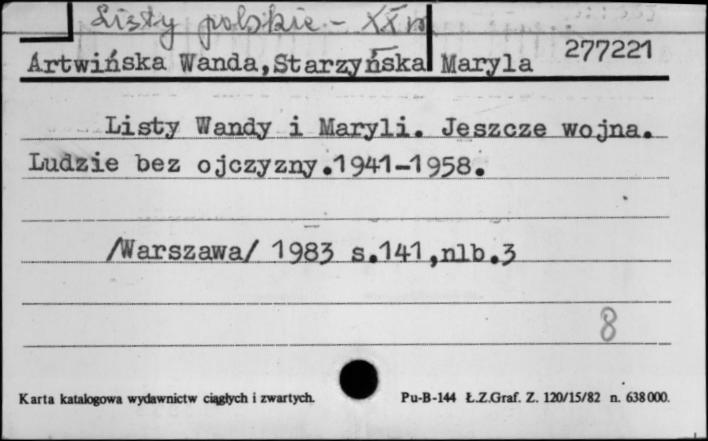 Listy polskie - XX w
Artwińska Wanda,Starzyńska Maryla 277221
Listy Wandy i Maryli. Jeszcze wojna.
Ludzie bez ojczyzny.1941-1958.
/Warszawa/ 1983 s.141,nlb.3
8
Karta katalogowa wydawnictw ciągłych i zwartych. Pu-B-144 Ł.Z.Graf. Z. 120/15/82 n. 638000.